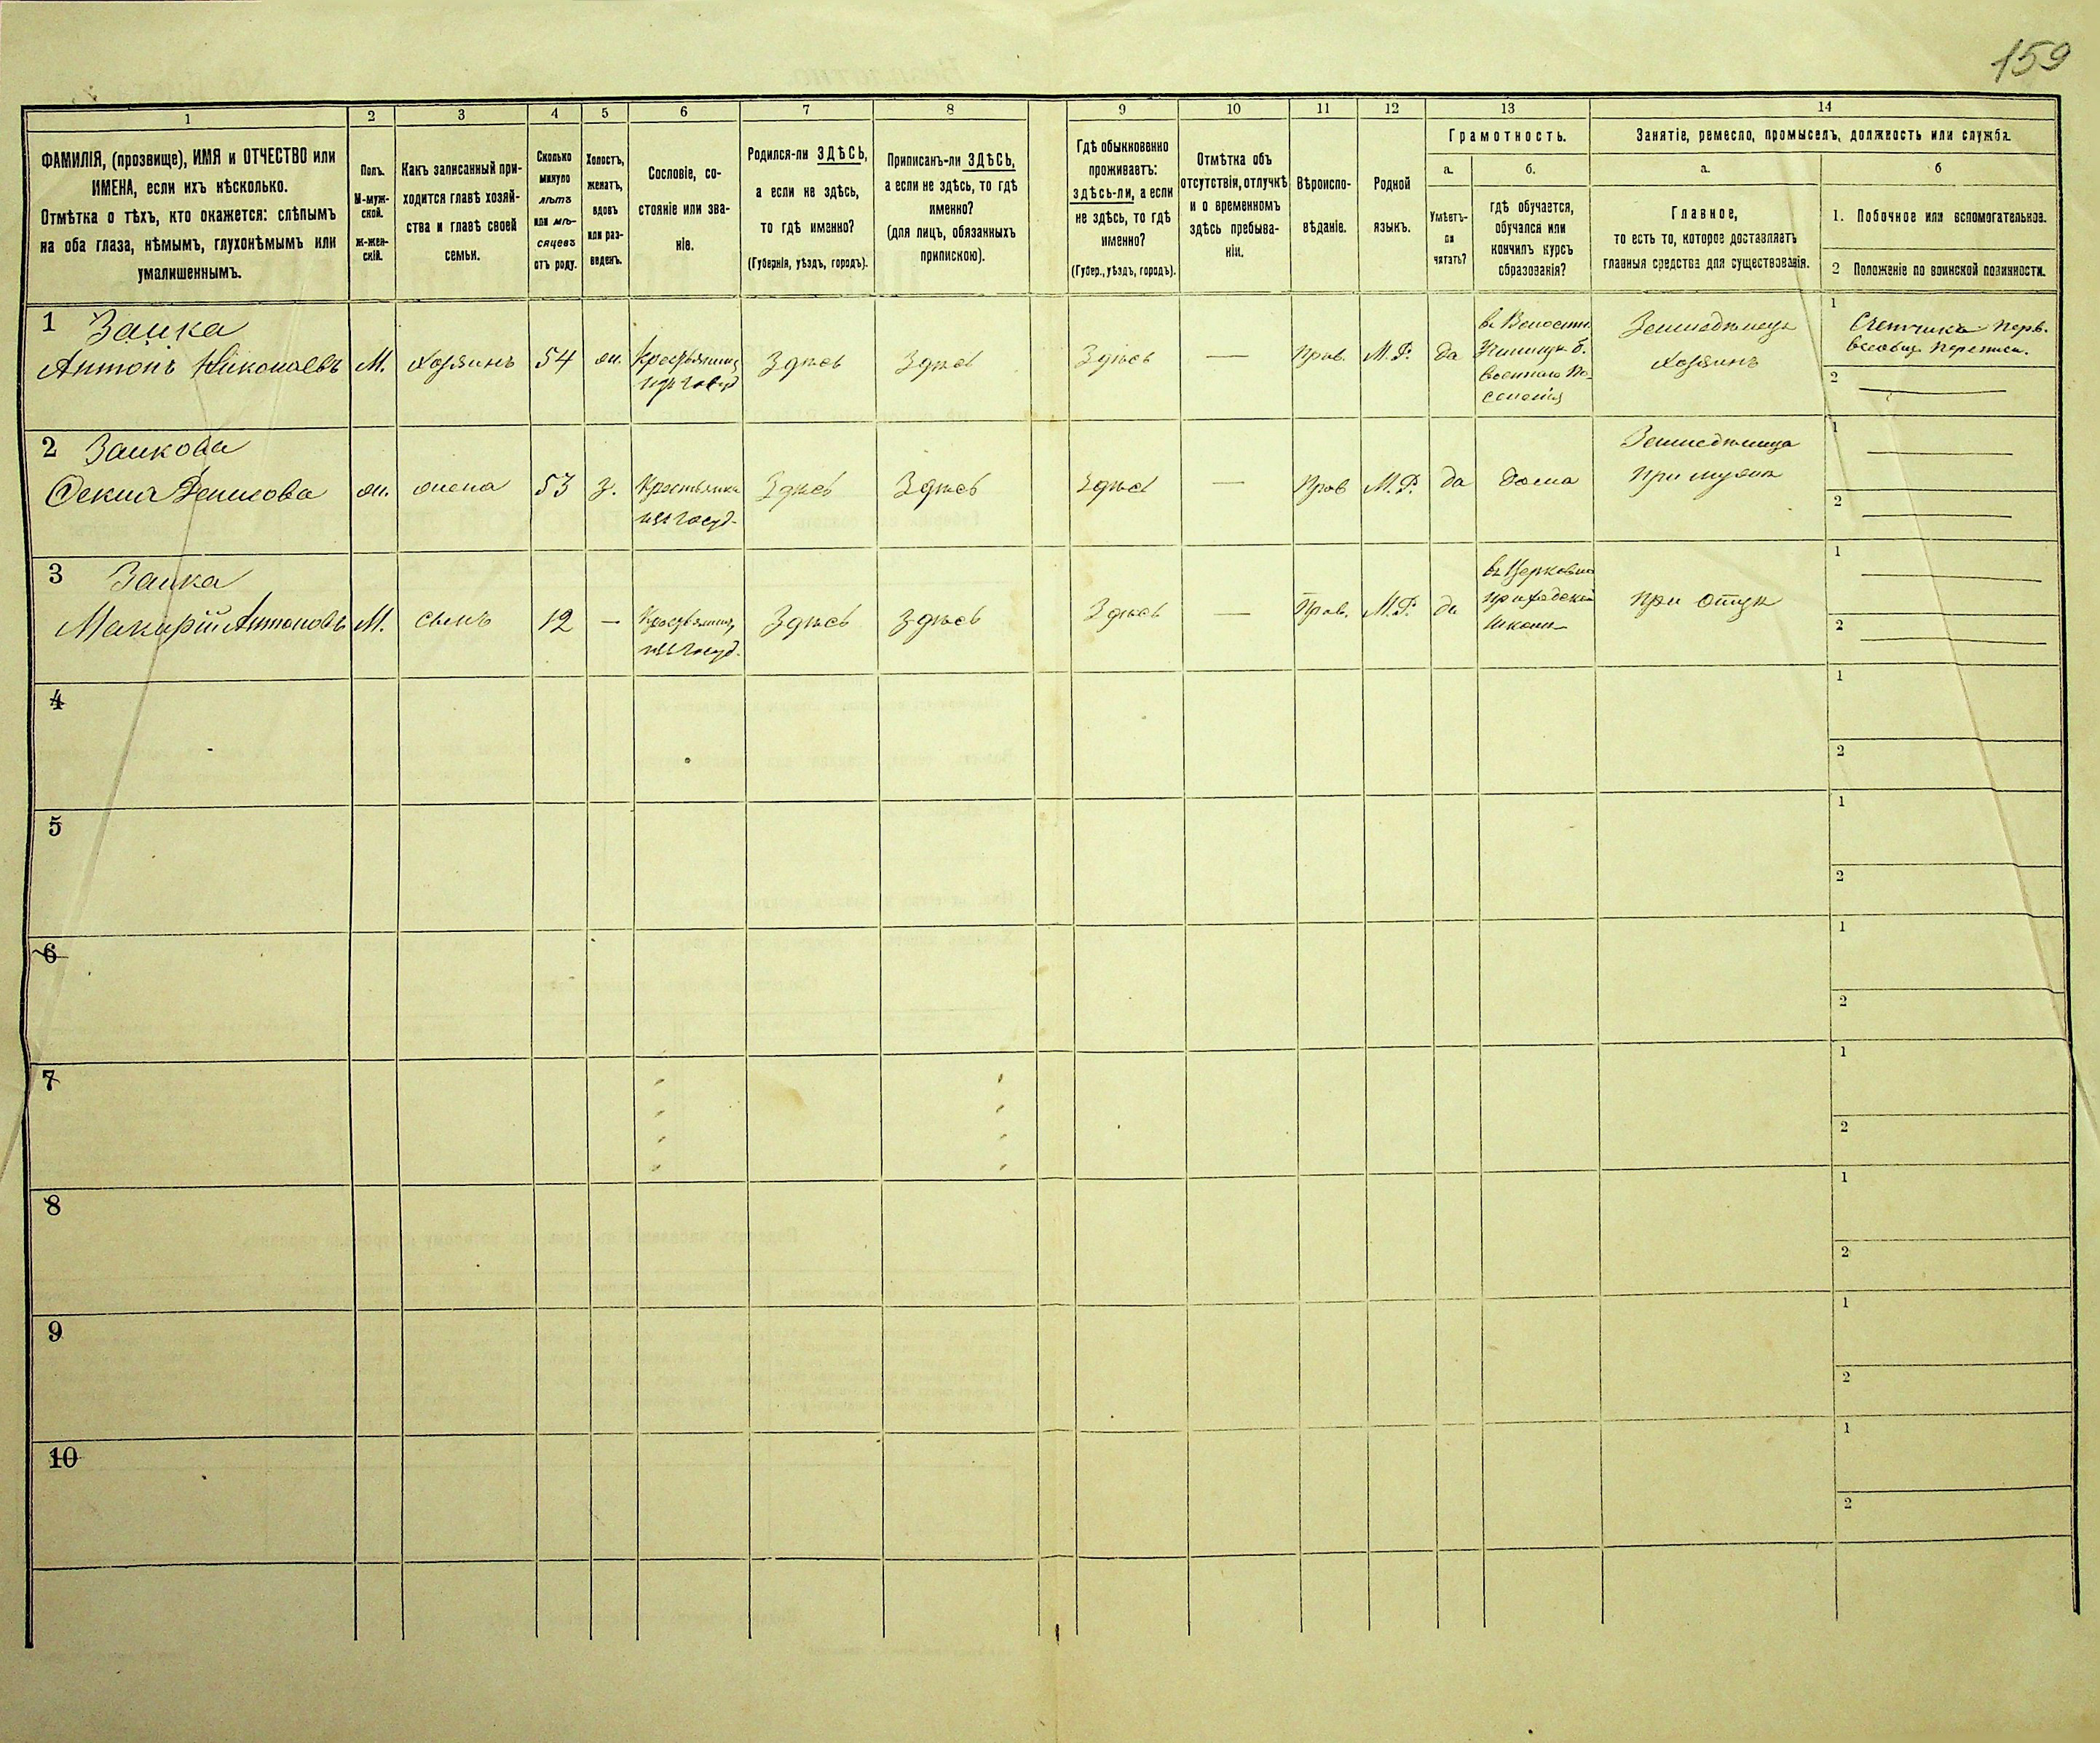 159
1 2 3 4 5 6 7 8 9 10 11 12 13 14
ФАМИЛІЯ, (прозвище), ИМЯ и ОТЧЕСТВО или
ИМЕНА, если ихъ нѣсколько.
Отмѣтка о тѣхъ, кто окажется: слѣпымъ
на оба глаза, нѣмымъ, глухонѣмымъ или
умалишеннымъ.
Полъ.
М-муж-
ской.
Ж-жен-
скій.
Какъ записанный при-
ходится главѣ хозяй-
ства и главѣ своей
семьи.
Сколько
минуло
лѣтъ
или мѣ-
сяцевъ
отъ роду.
Холостъ,
женатъ,
вдовъ
или раз-
веденъ.
Сословіе, со-
стояніе или зва-
ніе.
Родился-ли ЗДѢСЬ,
а если не здѣсь,
то гдѣ именно?
(Губернія, уѣздъ, городъ).
Приписанъ-ли ЗДѢСЬ,
а если не здѣсь, то гдѣ
именно?
(для лицъ, обязанныхъ
припискою).
Гдѣ обыкновенно
проживаетъ:
здѣсь-ли, а если
не здѣсь, то гдѣ
именно?
(Губер., уѣздъ, городъ).
Отмѣтка объ
отсутствіи, отлучкѣ
и о временномъ
здѣсь пребыва-
ніи.
Вѣроиспо-
вѣданіе.
Родной
языкъ.
Грамотность.
а.
Умѣетъ-
ли
читать?
б.
гдѣ обучается,
обучался или
кончилъ курсъ
образованія?
Занятіе, ремесло, промыселъ, должность или служба.
а.
Главное,
то есть то, которое доставляетъ
главныя средства для существованія.
б
1. Побочное или вспомогательное.
2 Положеніе по воинской повинности.
1 Заика
Антонъ Николаевъ М. Хозяинъ 54 ж. Крестьянинъ Здѣсь Здѣсь Здѣсь — Прав. М. Р. да
военнаго По-
селенія
Земледѣлецъ
Хозяинъ
1 Счетчикъ перв.
всеобщ. переписи.
2 —
2 Заикова
Фекла Денисова ж. жена 53 з. Крестьянка Здѣсь Здѣсь Здѣсь — Прав М. Р. да дома
изъ госуд.
Земледѣлица
при мужѣ
1 —
2 —
3 Заика
Макарій Антоновъ М. сынъ 12 — Крестьянинъ Здѣсь здѣсь Здѣсь — Прав. М. Р. да
изъ госуд.
въ Церковно
приходской
школѣ
при отцѣ
1 —
2 —
4 1
2
5 1
2
6 1
2
7 1
2
8 1
2
9 1
2
10 1
2